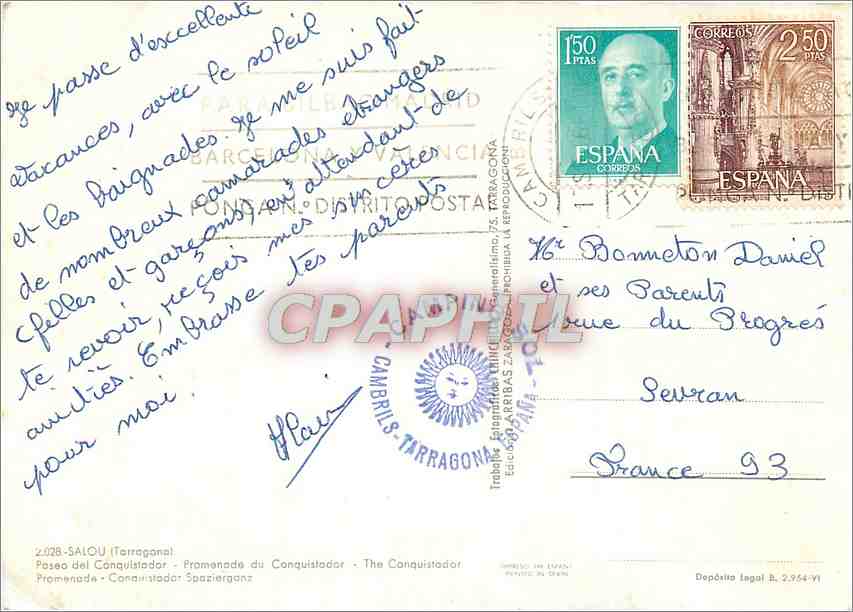 Je passe d'excellente
vacances, avec le soleil
et les baignades. Je me suis fait
de nombreux camarades étrangers
(felles et garçons), en attendant de
te revoir, reçois mes sinceres
amitiés. Embrasse tes parents
pour moi.
PARA BILBAO MADRID
BARCELONA Y VALENCIA
PONGA N.º DISTRITO POSTAL
1'50
PTAS
ESPAÑA
CORREOS
CORREOS
2'50
PTAS
ESPAÑA
CAMBRILS
PONGA N.º DISTRI
Mr Bonneton Daniel
et ses Parents
Avenue du Progrés
Sevran
France 93
CAMBRILS-TARRAGONA ESPAÑA
CPAPHIL
Generalísimo, 75. TARRAGONA
ARRIBAS ZARAGOZA (PROHIBIDA LA REPRODUCCION)
2.028.-SALOU (Tarragona)
Paseo del Conquistador - Promenade du Conquistador - The Conquistador
Promenade - Conquistador Spazierganz
IMPRESO EN ESPAÑA
PRINTED IN SPAIN
Depósito Legal B. 2.954-VI